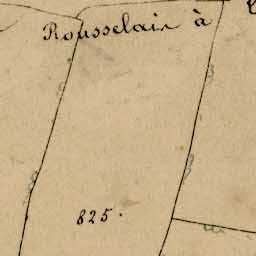 Rousselais à
825.